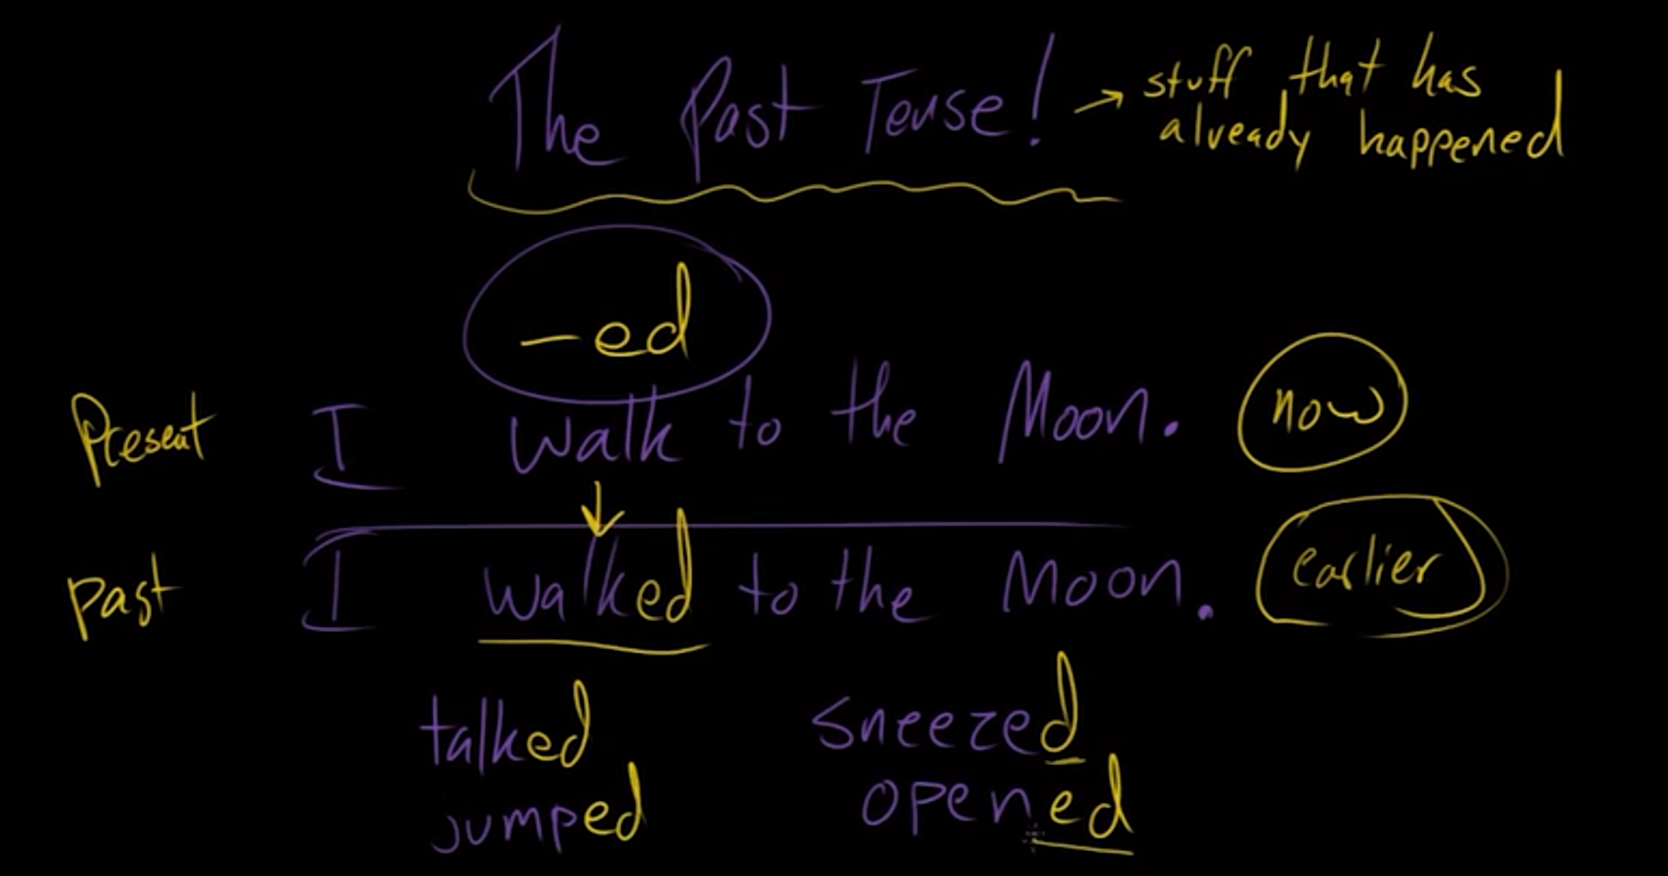 The Past Tense! → stuff that has
already happened
-ed
Present I walk to the Moon. now
Past I walked to the Moon. earlier
talked sneezed
jumped opened